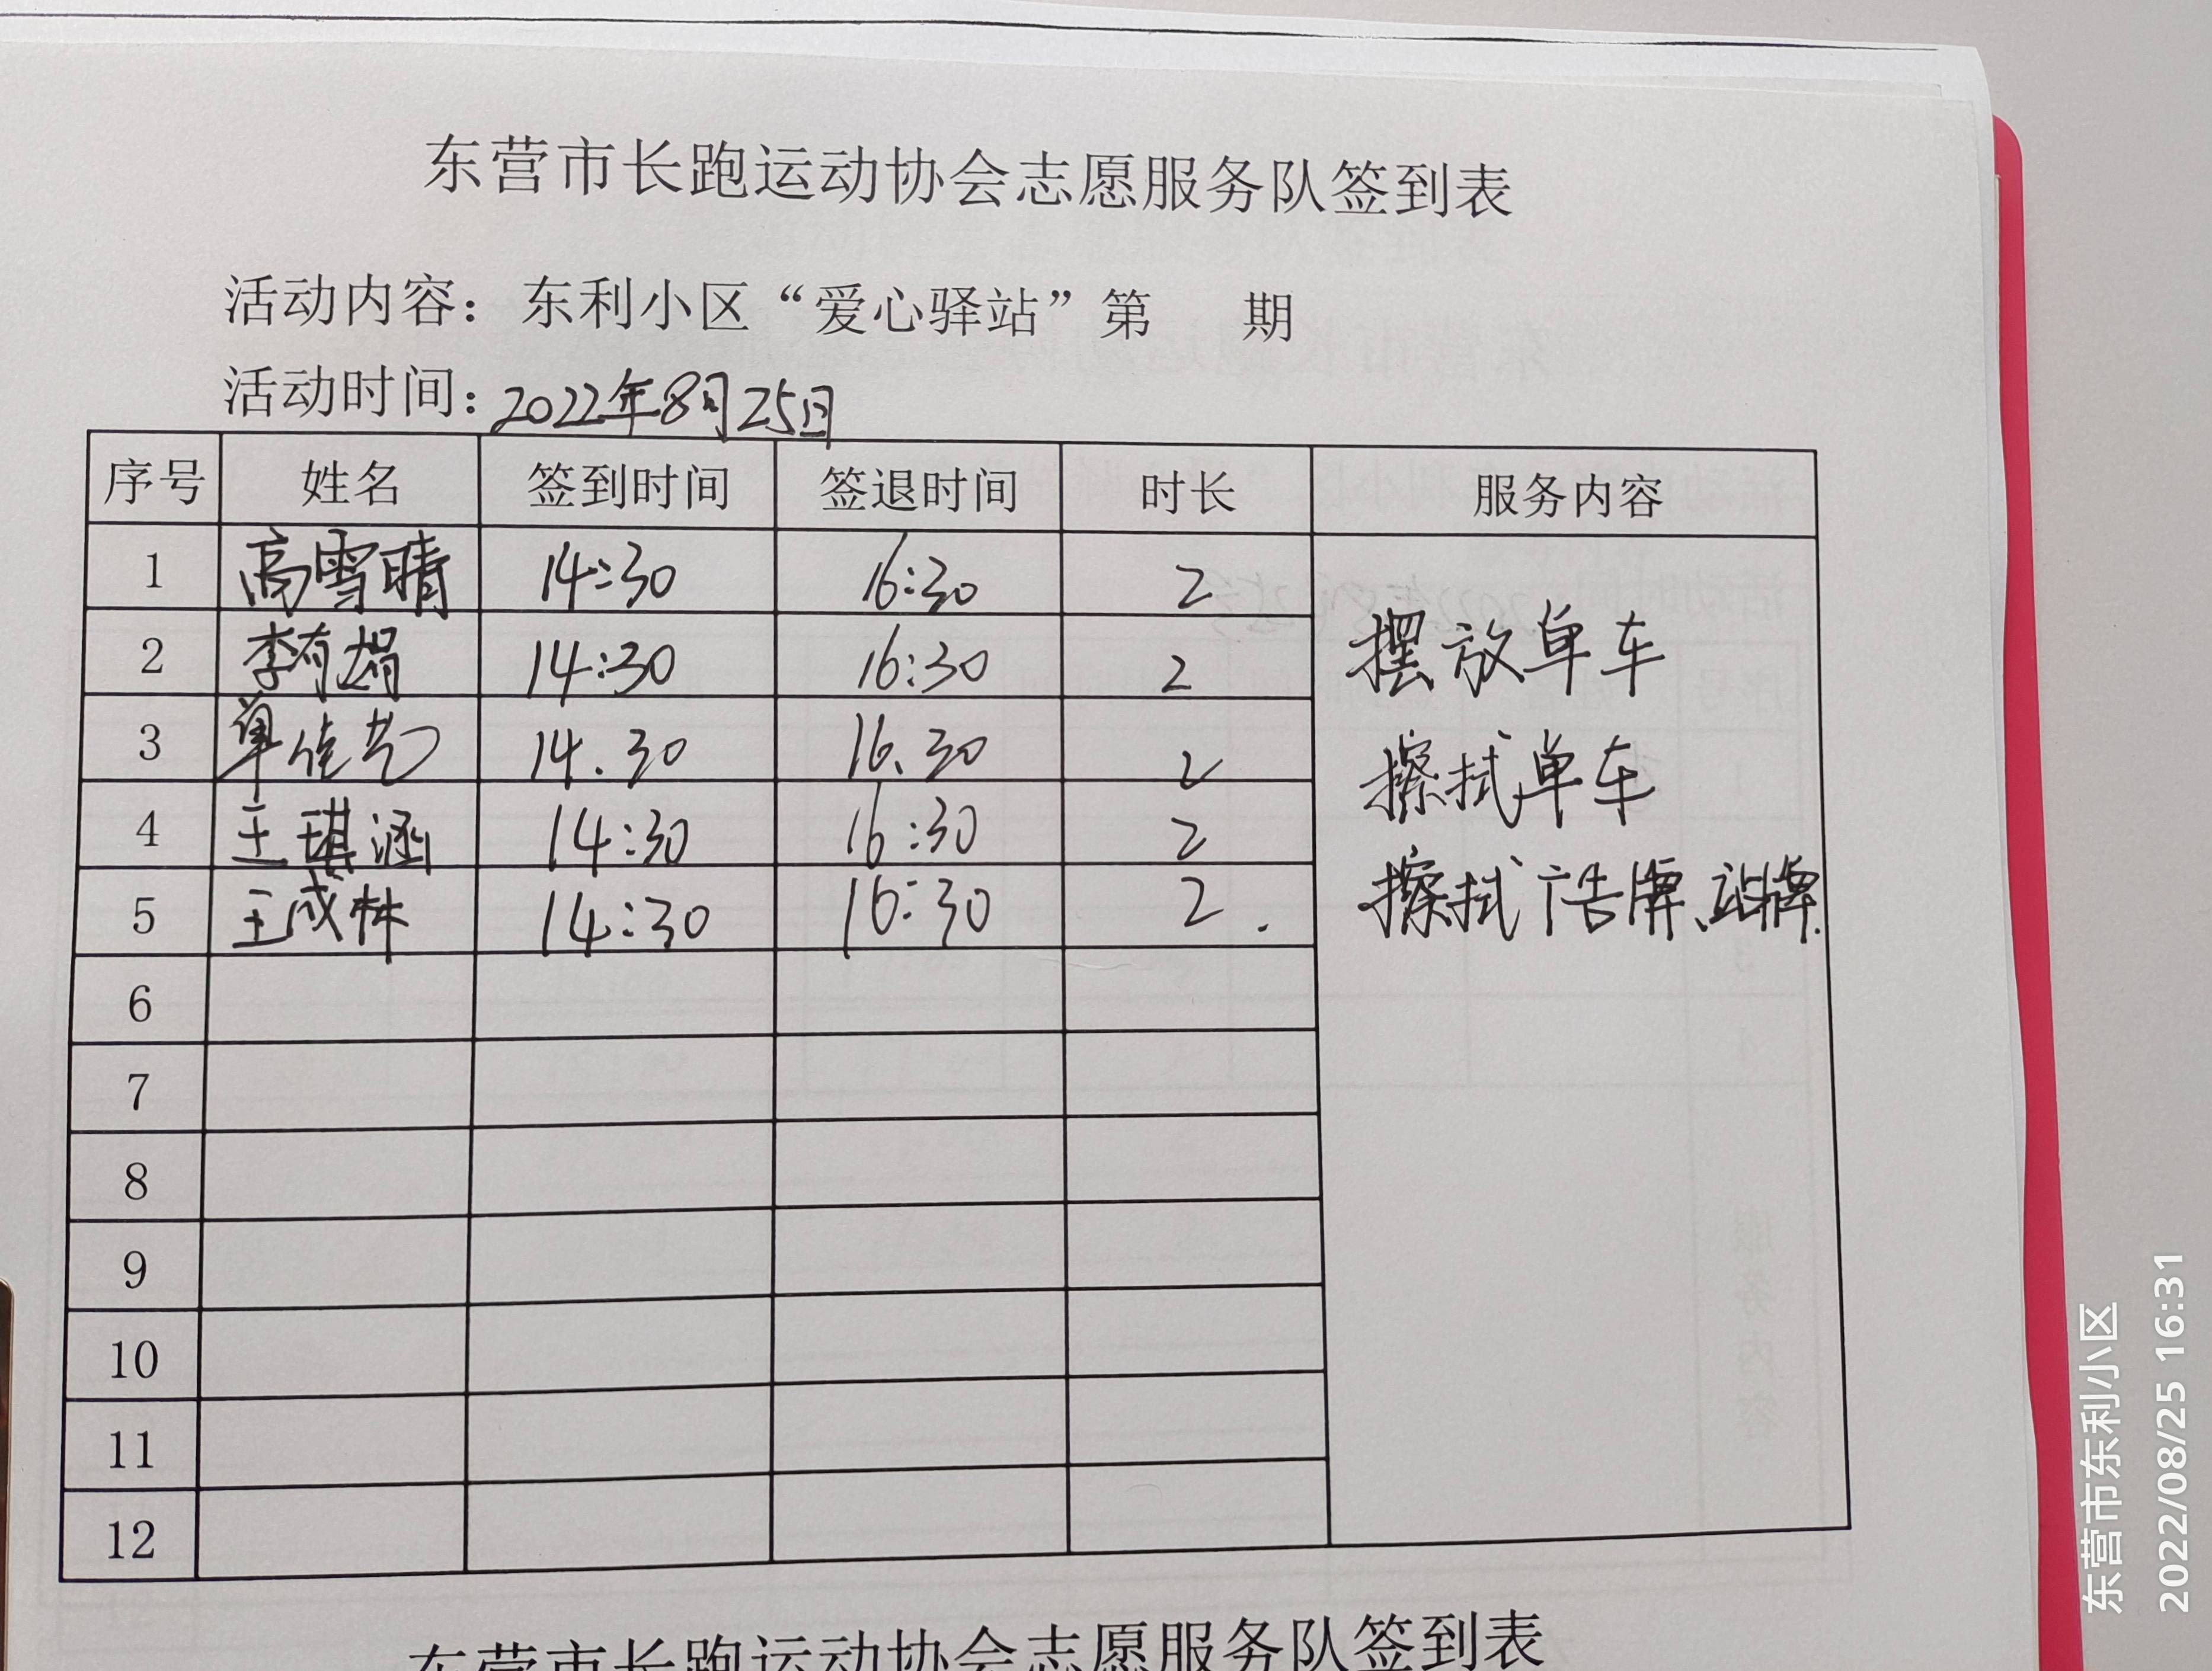 东营市长跑运动协会志愿服务队签到表
活动内容：东利小区“爱心驿站”第 期
活动时间：2022年8月25日
序号 姓名 签到时间 签退时间 时长 服务内容
1 高雪晴 14:30 16:30 2
2 李有娟 14:30 16:30 2
摆放单车
3 单佳艺 14.30 16.30 2
擦拭单车
4 王琪涵 14:30 16:30 2
5 王成林 14:30 16:30 2.
擦拭广告牌、站牌.
6
7
8
9
10
11
12
东营市长跑运动协会志愿服务队签到表
东营市东利小区
2022/08/25 16:31